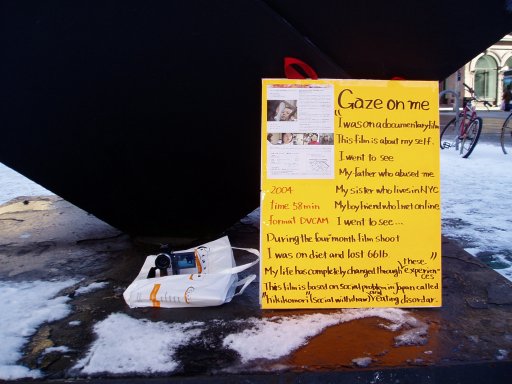 Gaze on me
"I was on a documentary film
This film is about my self.
I went to see
My father who abused me
2004 My sister who lives in NYC
time 58min My boy friend who I net online
format DVCAM I went to see...
During the four month film shoot
I was on diet and lost 66lb.
My life has completely changed through these experiences"
This film is based on social problem in Japan called
"hikikomori" (social withdraw) and eating disorder.